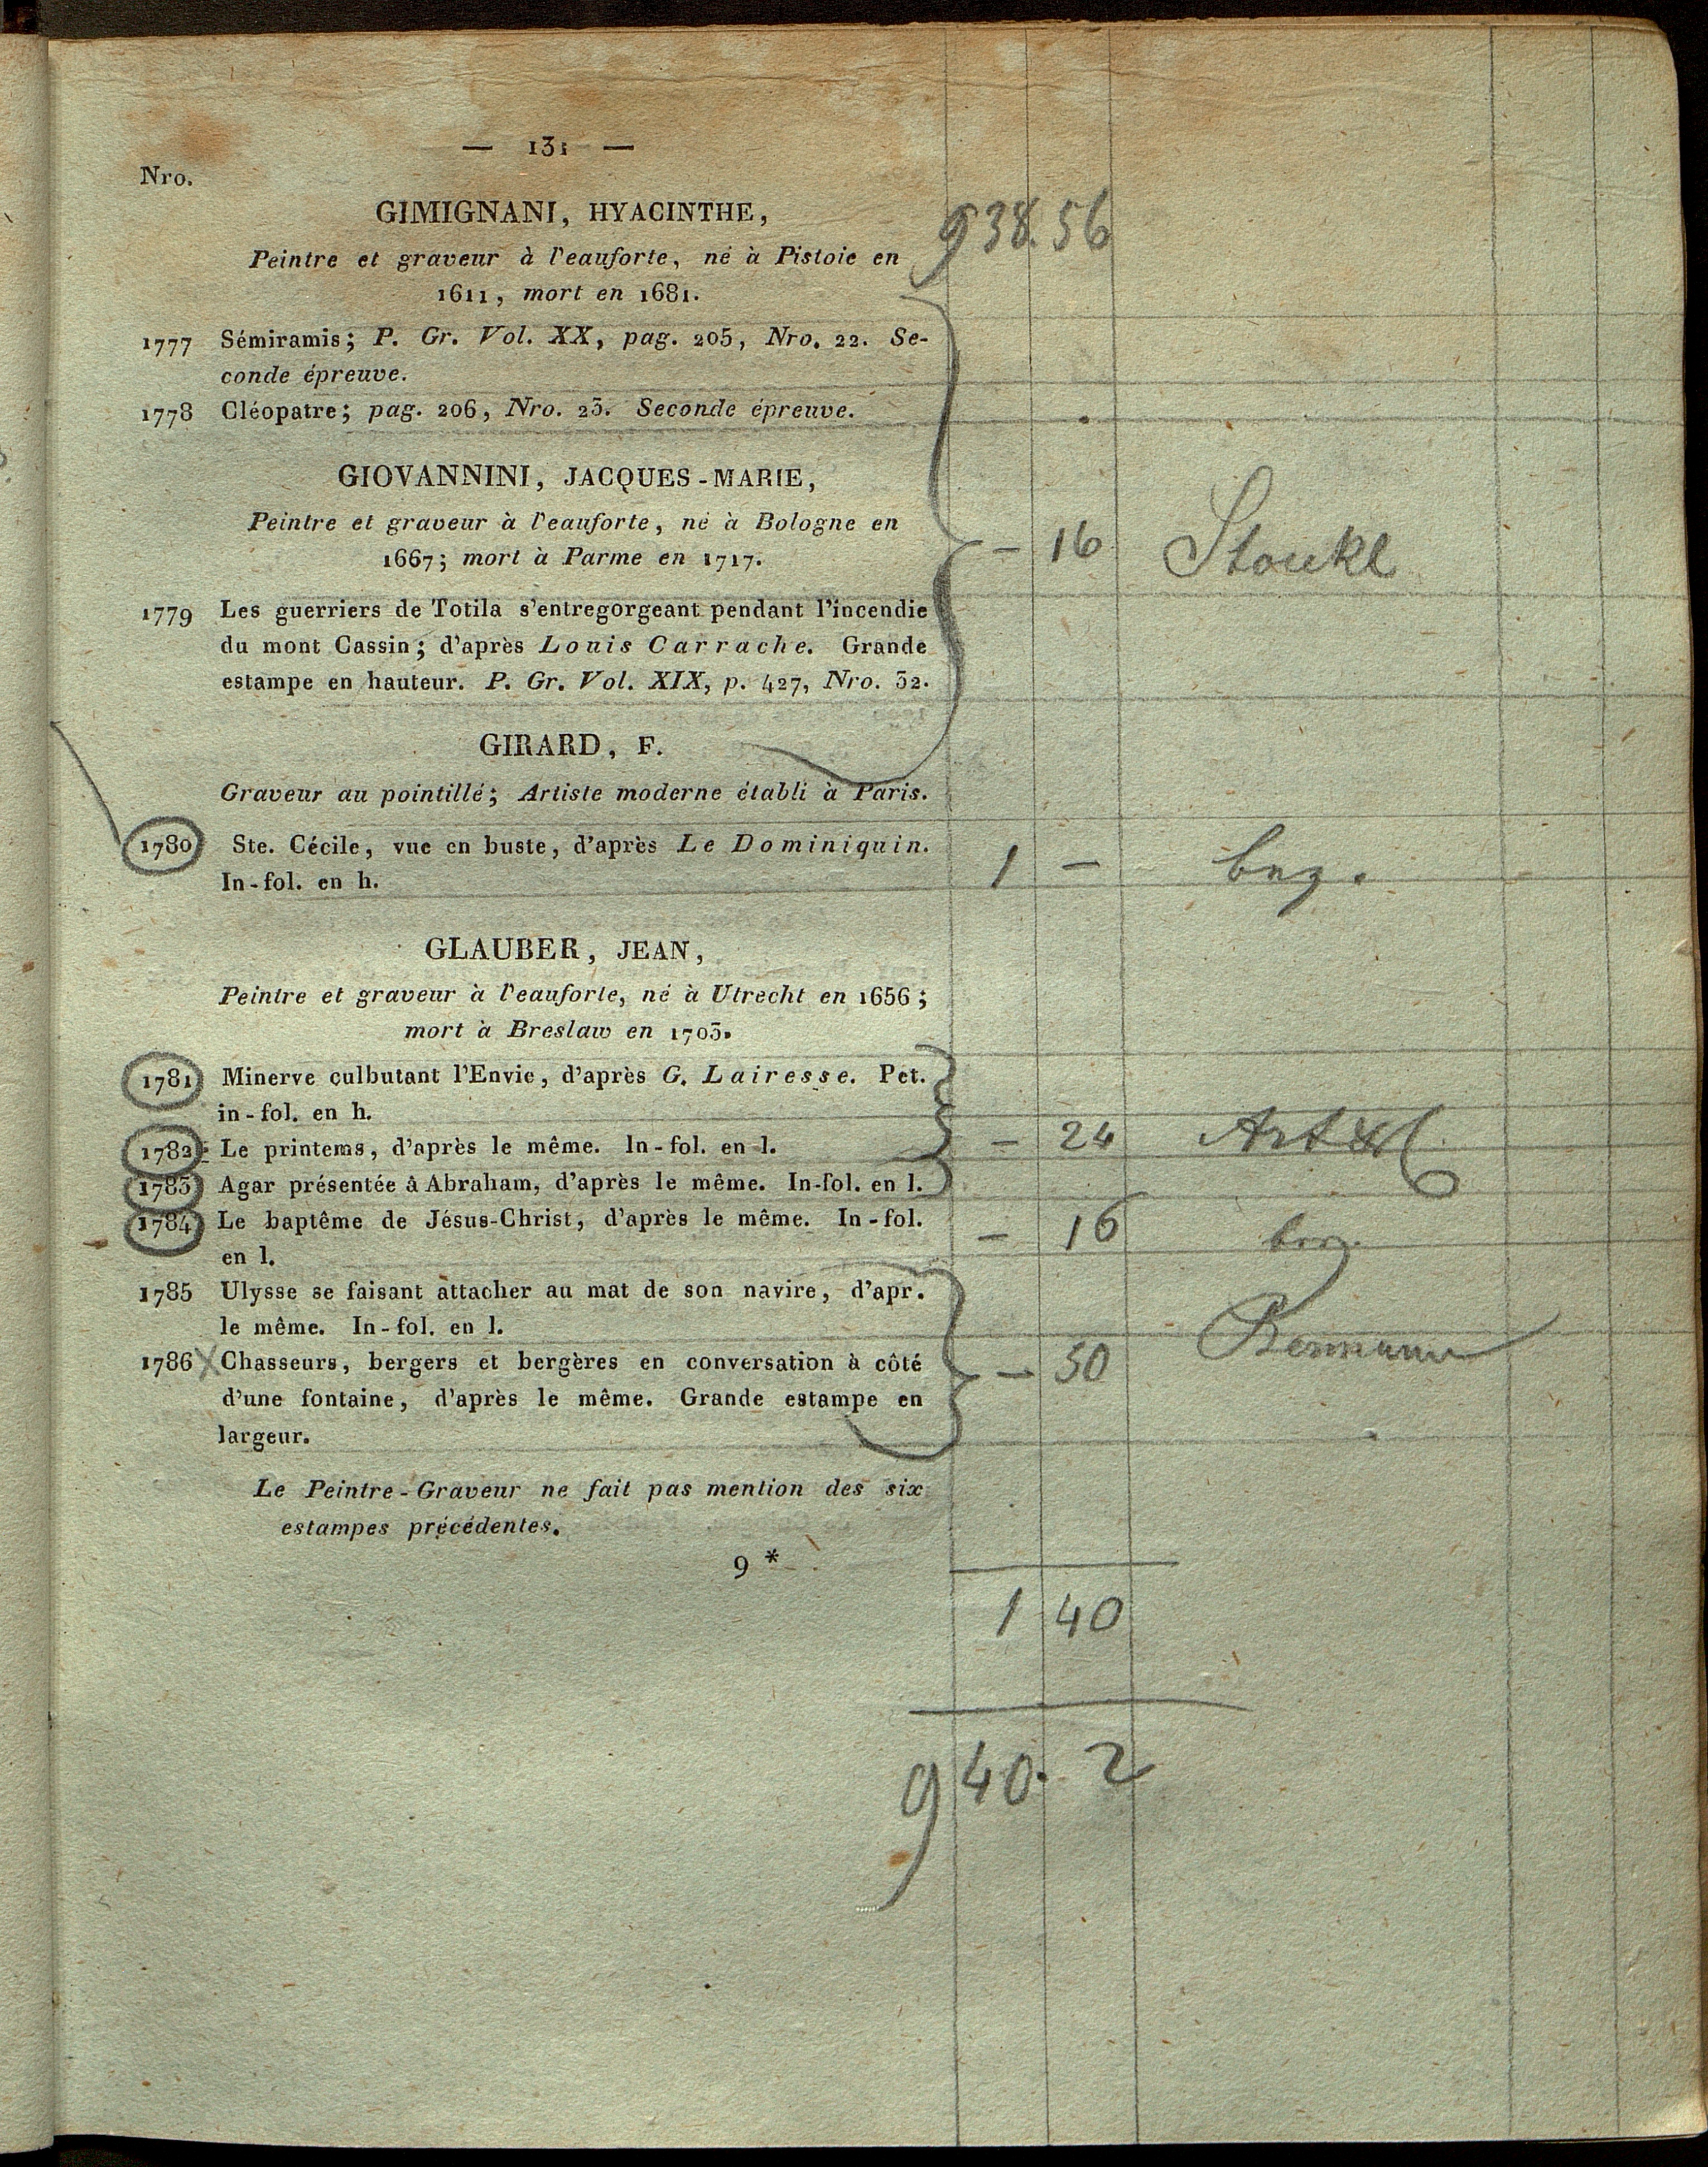 — 131 —
Nro.
GIMIGNANI, HYACINTHE,
938.56
Peintre et graveur à l'eauforte, né à Pistoie en
1611, mort en 1681.
1777 Sémiramis; P. Gr. Vol. XX, pag. 205, Nro. 22. Se-
conde épreuve.
1778 Cléopatre; pag. 206, Nro. 23. Seconde épreuve.
GIOVANNINI, JACQUES-MARIE,
Peintre et graveur à l'eauforte, né à Bologne en
1667; mort à Parme en 1717.
— 16 Stoukl
1779 Les guerriers de Totila s'entregorgeant pendant l'incendie
du mont Cassin; d'après Louis Carrache. Grande
estampe en hauteur. P. Gr. Vol. XIX, p. 427, Nro. 32.
GIRARD, F.
Graveur au pointillé; Artiste moderne établi à Paris.
1780 Ste. Cécile, vue en buste, d'après Le Dominiquin.
In-fol. en h.
1 —
GLAUBER, JEAN,
Peintre et graveur à l'eauforte, né à Utrecht en 1656;
mort à Breslaw en 1703.
1781 Minerve culbutant l'Envie, d'après G. Lairesse. Pet.
in-fol. en h.
1782 Le printems, d'après le même. In-fol. en l.
— 24
1783 Agar présentée â Abraham, d'après le même. In-fol. en l.
1784 Le baptême de Jésus-Christ, d'après le même. In-fol.
en l.
— 16
1785 Ulysse se faisant attacher au mat de son navire, d'apr.
le même. In-fol. en l.
1786 X Chasseurs, bergers et bergères en conversation à côté
— 50
d'une fontaine, d'après le même. Grande estampe en
largeur.
Le Peintre-Graveur ne fait pas mention des six
estampes précédentes.
9 *
1 40
940. 2